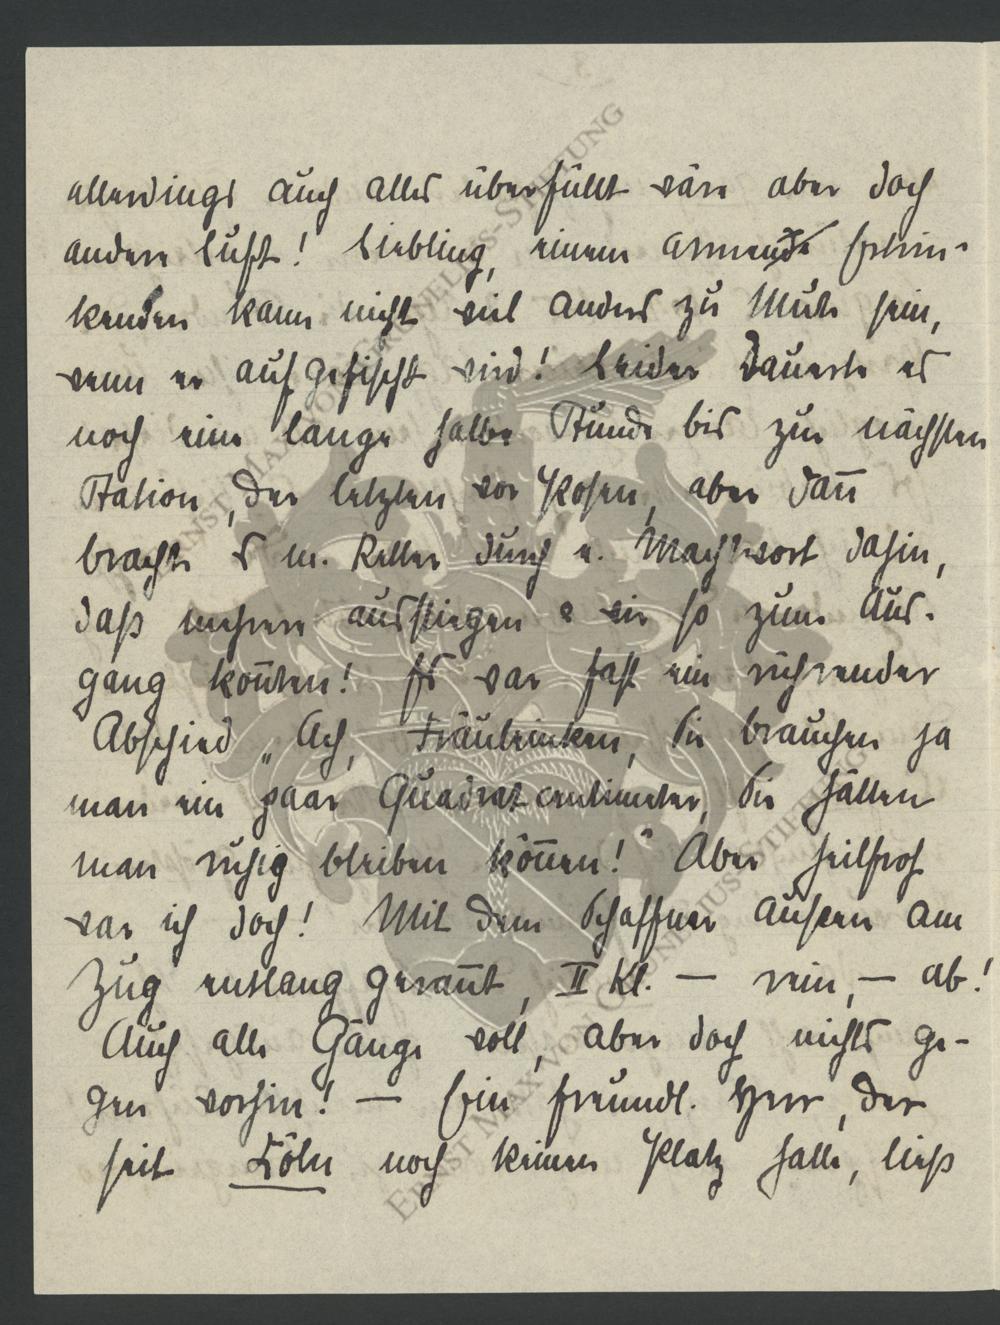 allerdings auch alles überfüllt wäre aber doch
andere Luft! Liebling, einem Ertrin-
kenden kann nicht viel anders zu Mute sein,
wenn er aufgefischt wird! Leider dauerte es
noch eine lange halbe Stunde bis zur nächsten
Station, der letzten vor Posen, aber dan̄
brachte es m. Retter durch e. Machtwort dahin,
daß mehrere ausstiegen u wir so zum Aus-
gang kon̄ten! Es war fast ein rührender
Abschied „Ach, Fräuleinken, Sie brauchen ja
man ein paar Quadratcentimeter, Sie hätten
man ruhig bleiben kön̄en!" Aber heilfroh
war ich doch! Mit dem Schaffner außen am
Zug entlang geran̄t, II Kl. — rein, — ab!
Auch alle Gänge voll, aber doch nichts ge-
gen vorhin! — Ein freundl. Herr, der
seit Köln noch keinen Platz hatte, ließ
ERNST MAX VON GRUNELIUS-STIFTUNG
ERNST MAX VON GRUNELIUS-STIFTUNG